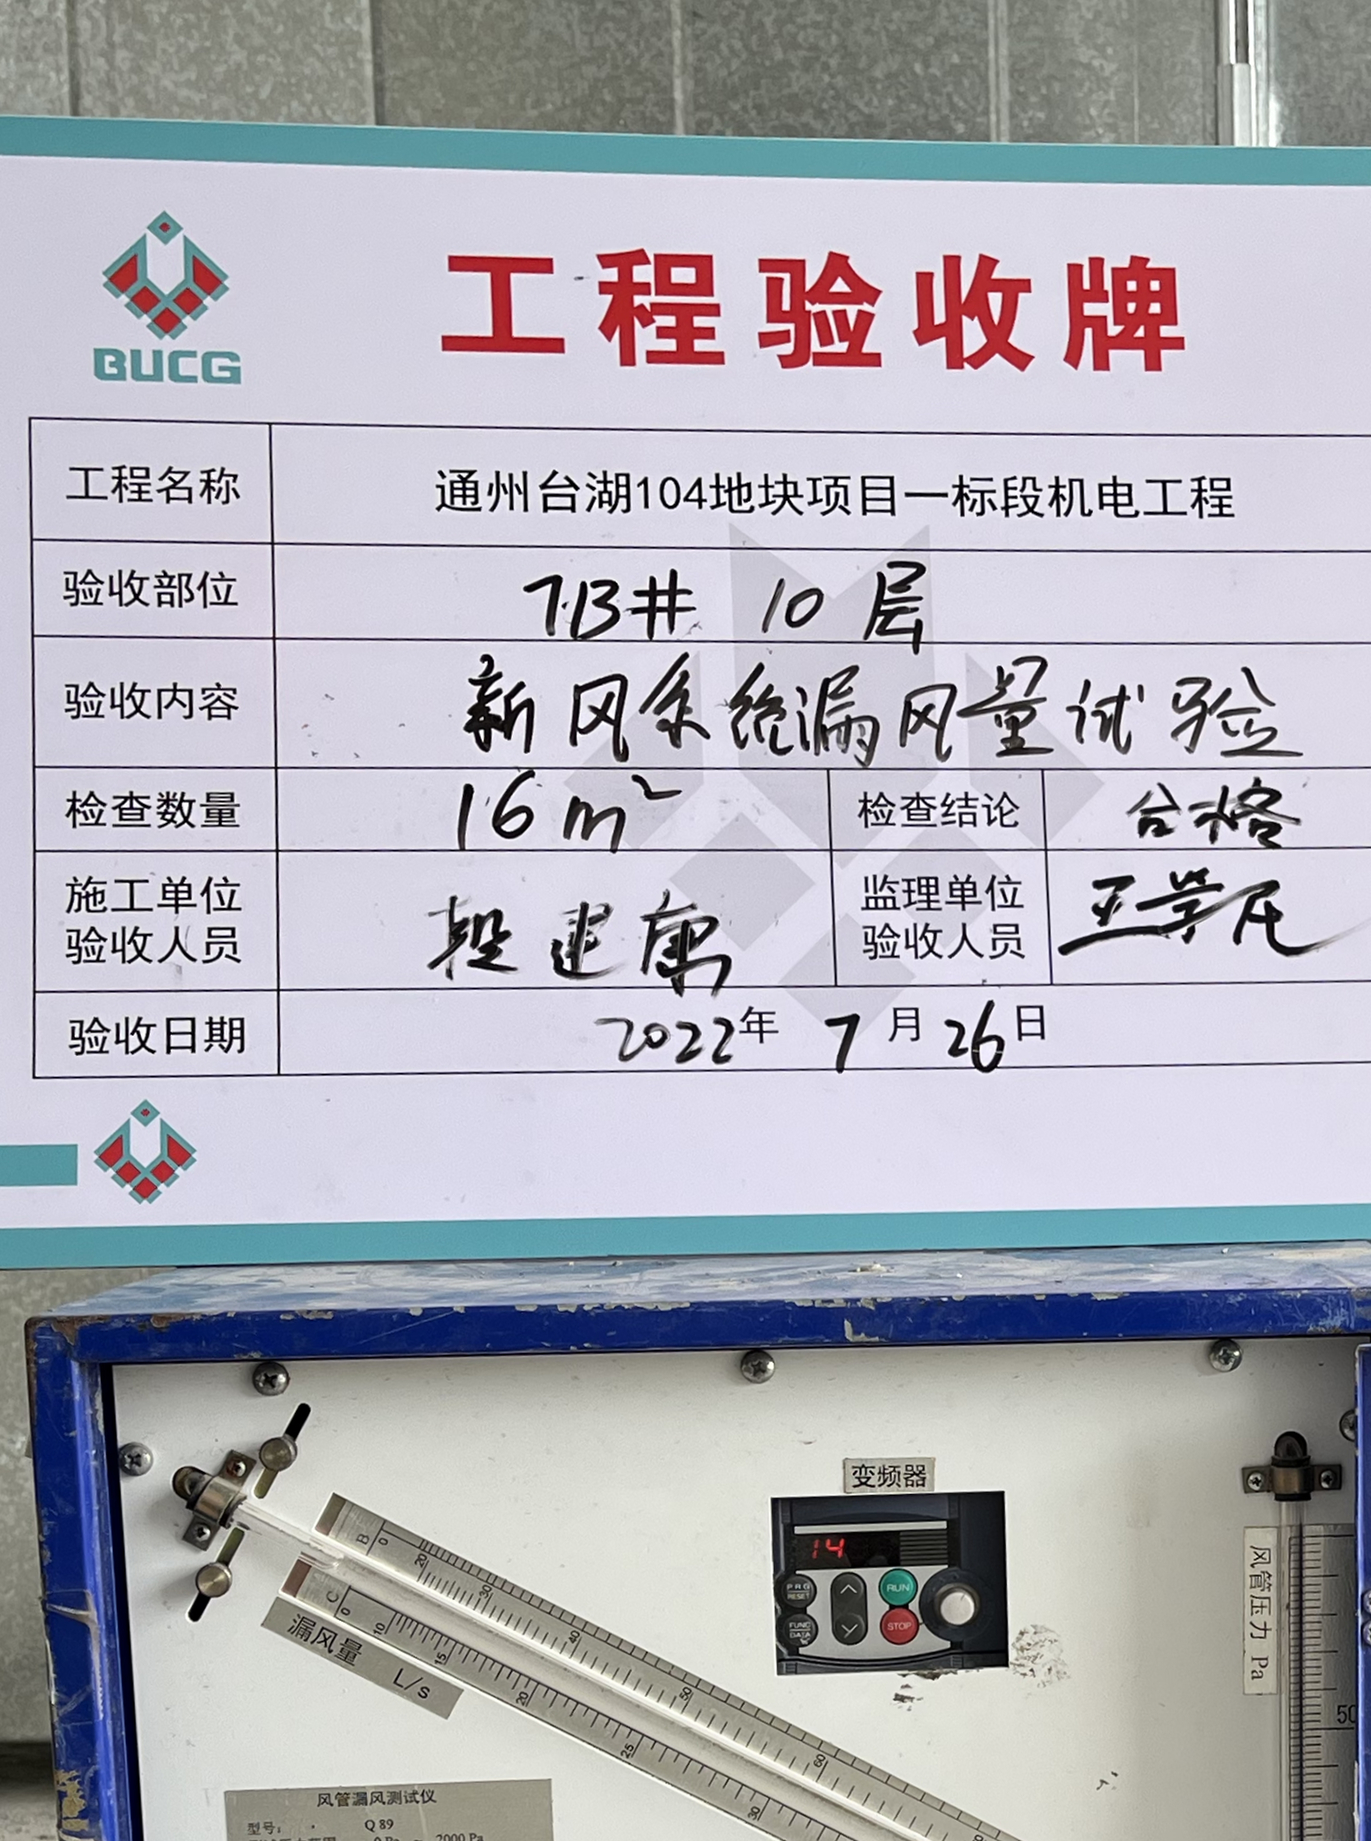 BUCG
工程验收牌
工程名称 通州台湖104地块项目一标段机电工程
验收部位 7B井 10层
验收内容 新风系统漏风量试验
检查数量 16m² 检查结论 合格
施工单位验收人员 段建康 监理单位验收人员
验收日期 2022年7月26日
变频器
14
PRG RESET
RUN
FUNC DATA
STOP
B 0 20 30 40 50 60
C 0 10 15 20 25 30
漏风量 L/s
风管压力 Pa
50
风管漏风测试仪
型号: Q89
0 Pa — 2000 Pa